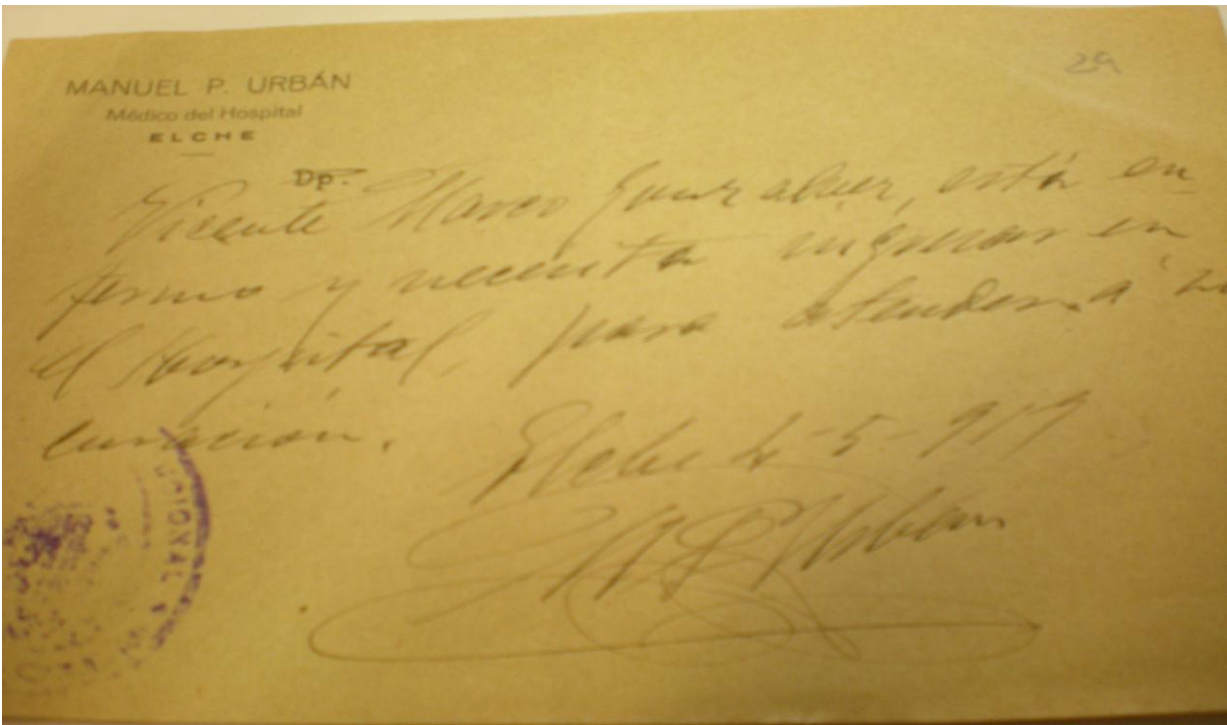 29
MANUEL P. URBÁN
Médico del Hospital
ELCHE
Dp.
Vicente Marco Gonzalvez, está en
fermo y necesita ingresar en
el hospital, para atender á su
curación.
Elche 4-5-939
M P Urbán